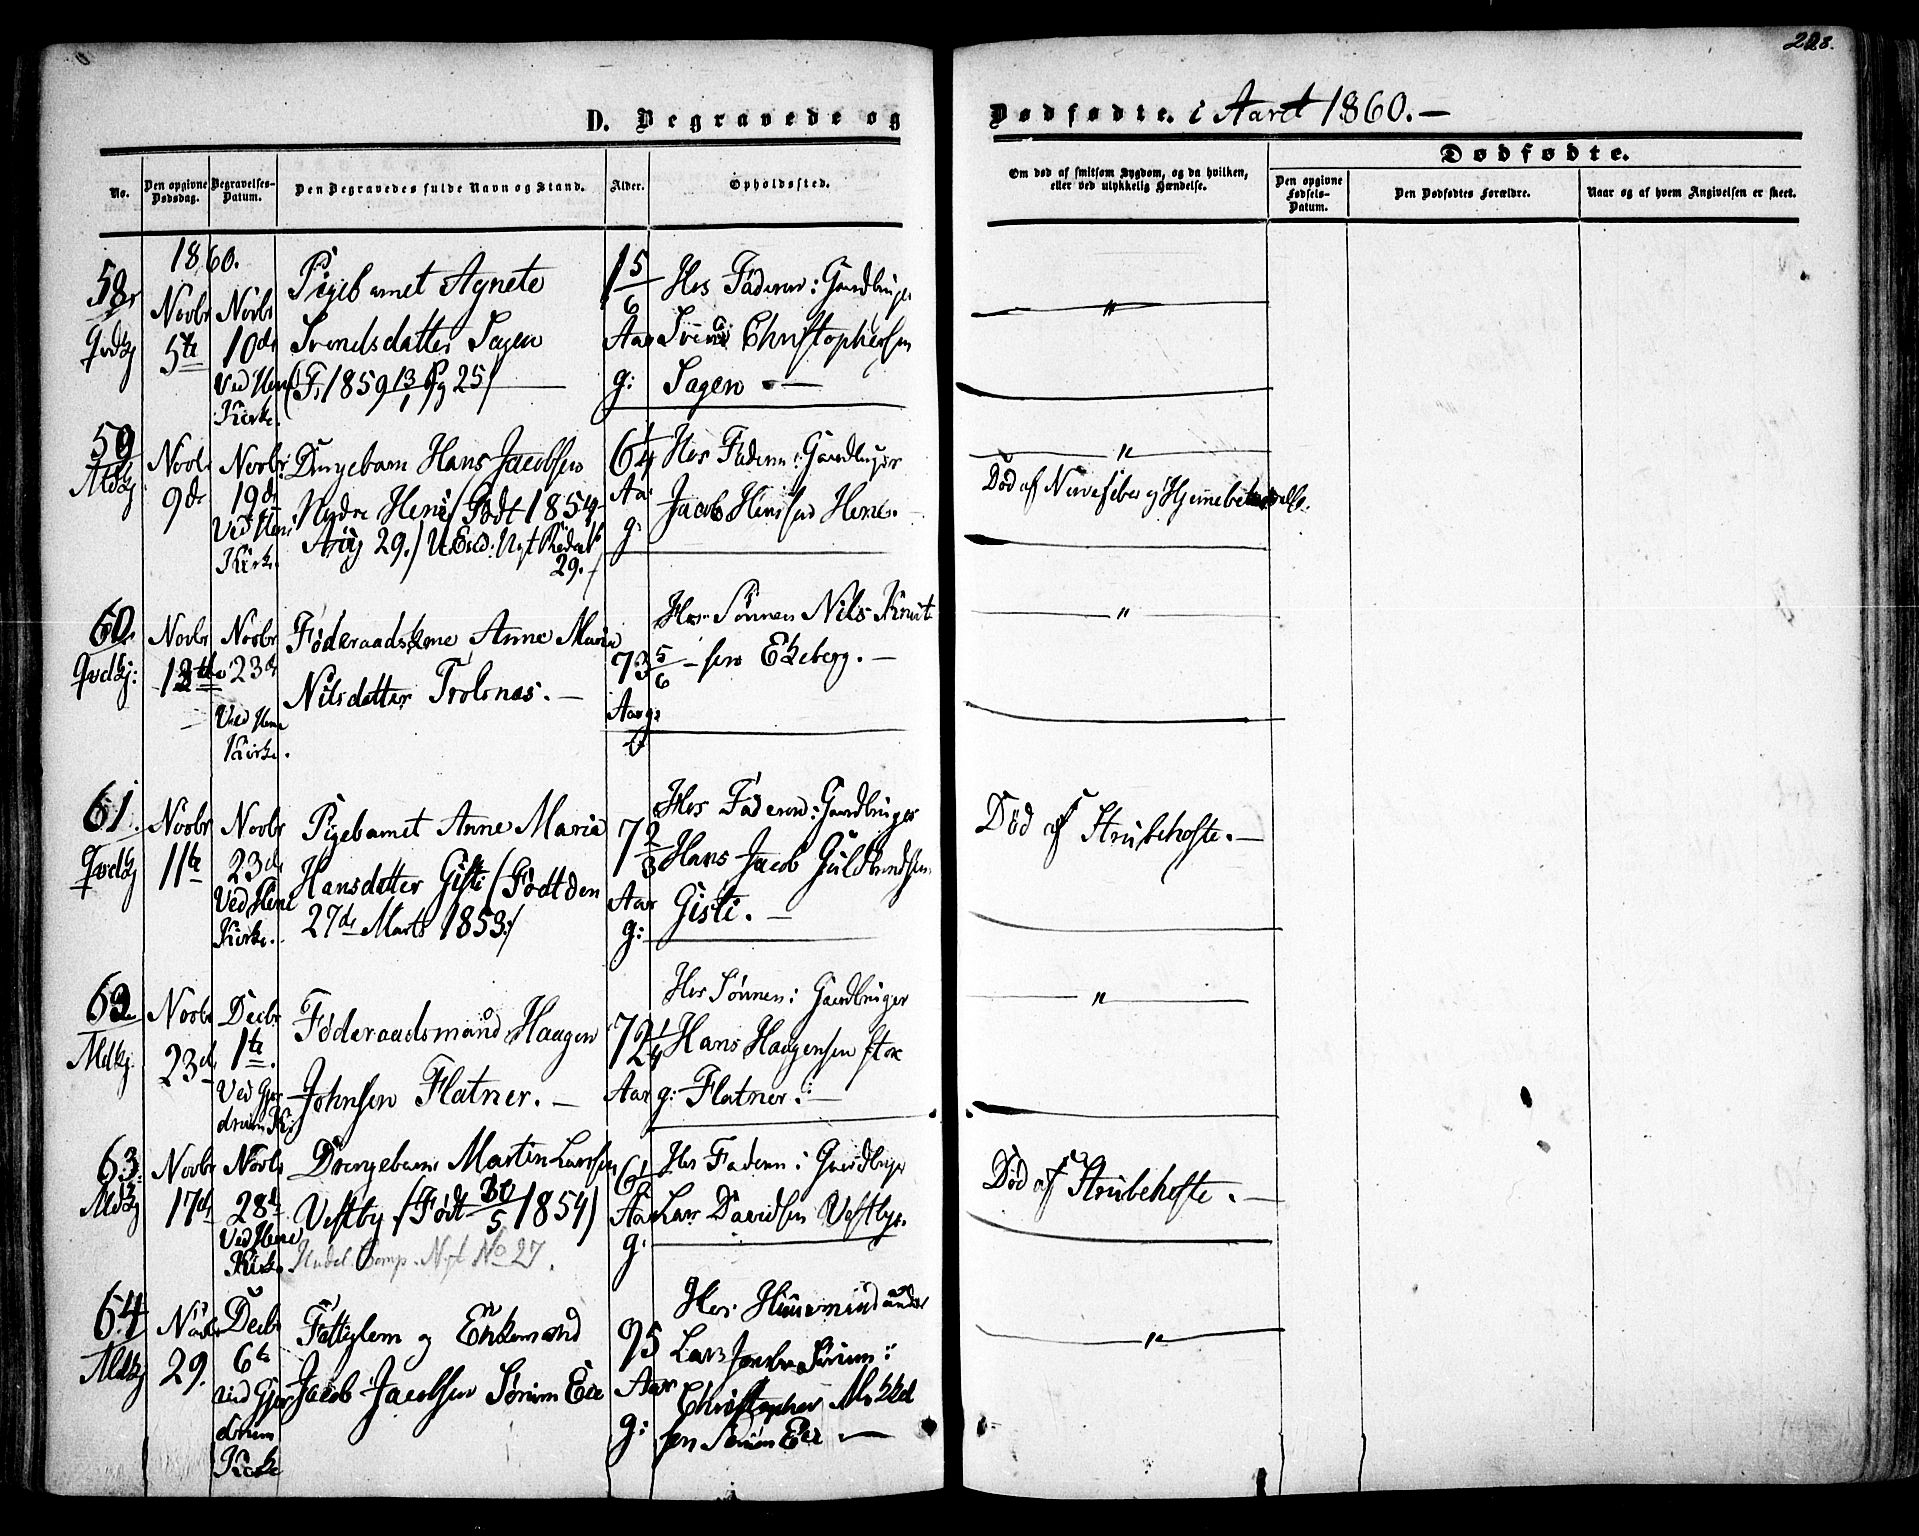 228.
D. Begravede og Dødfødte. i Aaret 1860.—
No.
Den opgivne Dødsdag.
Begravelses-Datum.
Den Begravedes fulde Navn og Stand.
Alder.
Opholdssted.
Om død af smitsom Sygdom, og da hvilken, eller ved ulykkelig Hændelse.
Dødfødte.
Den opgivne Fødsels-Datum.
Den Dødfødtes Forældre.
Naar og af hvem Angivelsen er skeet.
1860.
58
Novbr 5te
Novbr 10de
Ved Heni Kirke.
Pigebarnet Agnete
Svendsdatter Sagen
(F. 1859 13/1 Pg 25/
1 5/6 Aar g:
Hos Faderen: Gaardbruger
Svend Christophersen
Sagen —
"
59
Mldkj
Novbr 9de
Novbr 19de
Ved Heni Kirk.
Drengebarn Hans Jacobsen
Nydre Heni / Født 1854
Aug 29. /
29. /
6 1/4 Aa g:
Hos Faderen: Gaardbruger
Jacob Hansen Heni. —
"
Død af Nervefeber og Hjernebetændelse.
60
Novbr
Novbr 23de
Ved Heni Kirke.
Føderaadskone Anne Maria
Nilsdatter Trolsnes. —
73 5/6 Aar g:
Hos Sønnen Nils Knut
-sen Ekeberg. —
"
61.
Novbr 11te
Novbr 23de
Ved Heni Kirke.
Pigebarnet Anne Maria
Hansdatter Gisti (Født den
27de Marts 1853:/
7 2/3 Aar g:
Hos Faderen: Gaardbruger
Hans Jacob Guldbrandsen
Gisti. —
Død af Strubehoste. —
62
Mldkj.
Novbr 23de
Decbr 1te.
Ved Gjerdrum K.
Føderaadsmand Haagen
Johnsen Flatner. —
72 1/4 Aar g:
Hos Sønnen: Gaardbruger
Hans Haagensen
Flatner. —
"
63.
Mldkj
Novbr 17de
Novbr 28de
Ved Heni Kirk.
Drengebarn Martin Larsen
Vestby (Født 30/5 1854)
No 27.
6 1/2 Aar g:
Hos Faderen: Gaardbruger
Lars Davidsen Vestby.
Død af Strubehoste. —
64
Mldkj
Novbr 29.
Decbr 6te
ved Gjerdrum Kirke
Fattiglem og Enkemand
Jacob Jacobsen Sørum Eie
95 Aar g:
Hos Huusmand
Lars Sørum:
Christopher
sen Sørum Eie —
"